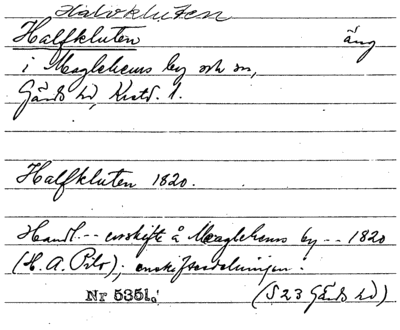 Halvkluten
Halfkluten äng
i Maglehems by och sn,
Gärds hd, Kristd. l.
Halfkluten 1820.
Handl. -- enskifte å Maglehems by -- 1820
(H. A. Pilo); enskiftesdelningen.
Nr 5351.
(S 23 Gärds hd)